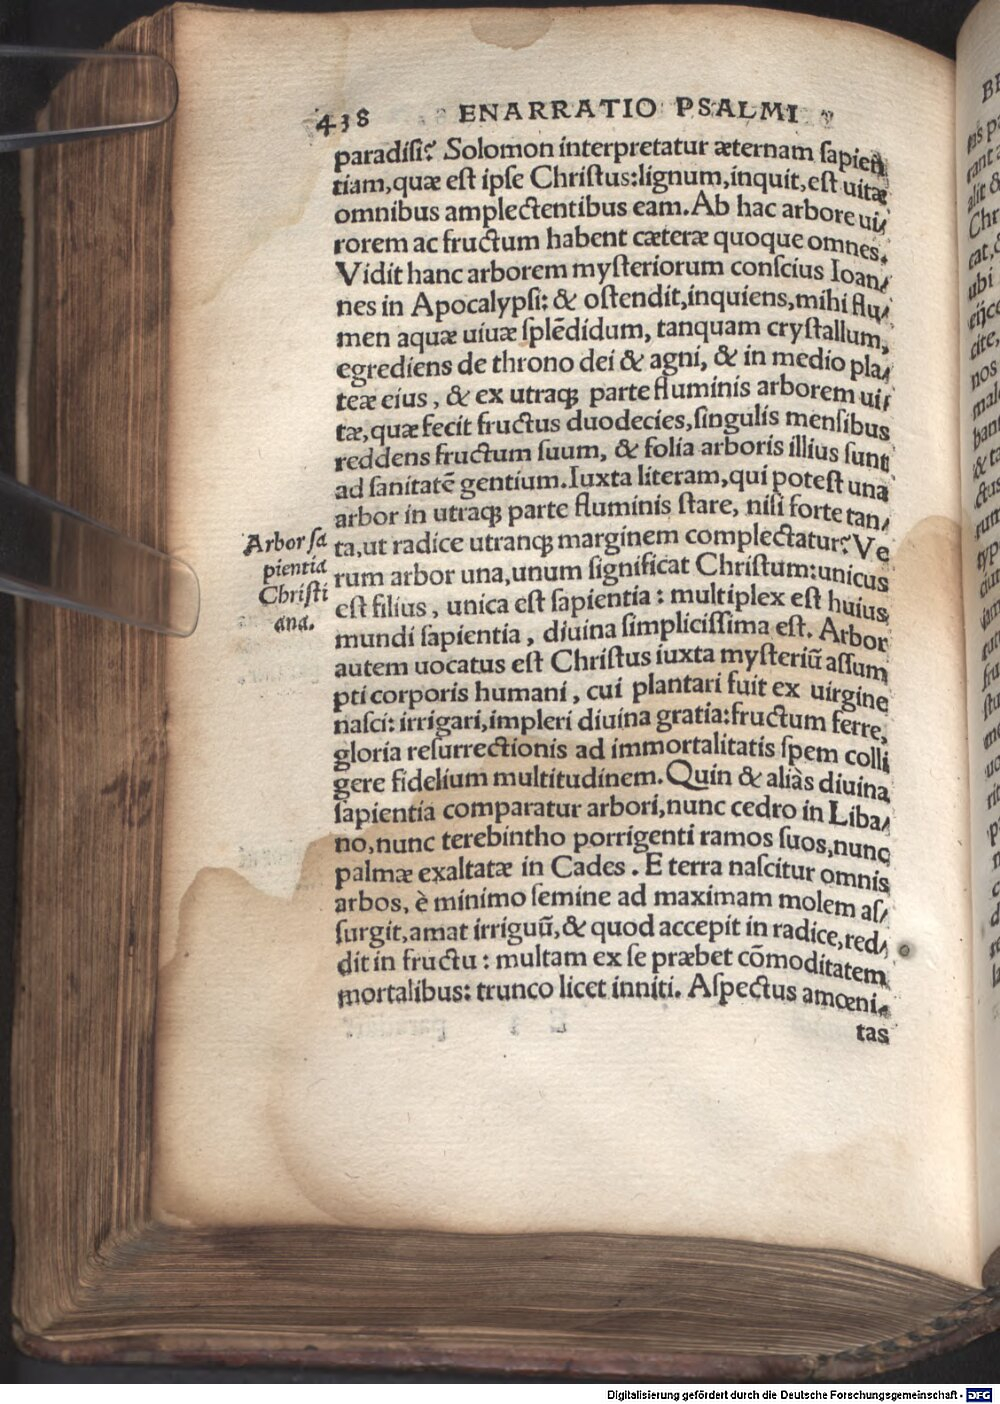 438 ENARRATIO PSALMI
paradisi? Solomon interpretatur æternam sapien
tiam,quæ est ipse Christus:lignum,inquit,est uitæ
omnibus amplectentibus eam. Ab hac arbore ui/
rorem ac fructum habent cæteræ quoque omnes.
Vidit hanc arborem mysteriorum conscius Ioan/
nes in Apocalypsi: & ostendit,inquiens,mihi flu/
men aquæ uiuæ splēdidum, tanquam crystallum,
egrediens de throno dei & agni, & in medio pla/
teæ eius, & ex utraqꝫ parte fluminis arborem ui/
tæ,quæ fecit fructus duodecies,singulis mensibus
reddens fructum suum, & folia arboris illius sunt
ad sanitatē gentium. Iuxta literam,qui potest una
arbor in utraqꝫ parte fluminis stare, nisi forte tan/
ta,ut radice utranqꝫ marginem complectatur? Ve
rum arbor una,unum significat Christum:unicus
est filius, unica est sapientia: multiplex est huius
mundi sapientia, diuina simplicissima est. Arbor
autem uocatus est Christus iuxta mysteriū assum
pti corporis humani, cui plantari fuit ex uirgine
nasci: irrigari,impleri diuina gratia:fructum ferre,
gloria resurrectionis ad immortalitatis spem colli
gere fidelium multitudinem. Quin & aliàs diuina
sapientia comparatur arbori,nunc cedro in Liba/
no,nunc terebintho porrigenti ramos suos,nunc
palmæ exaltatæ in Cades. E terra nascitur omnis
arbos, è minimo semine ad maximam molem as/
surgit,amat irriguū,& quod accepit in radice,red/
dit in fructu: multam ex se præbet cōmoditatem
mortalibus: trunco licet inniti. Aspectus amœni/
tas
Arbor sa
pientia
Christi
ana.
Digitalisierung gefördert durch die Deutsche Forschungsgemeinschaft - DFG